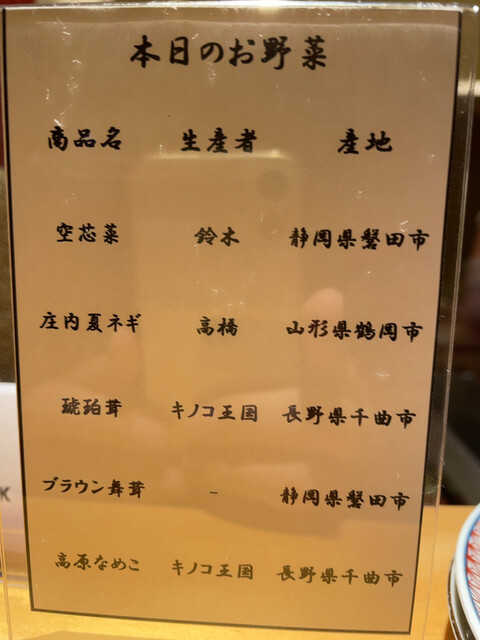 本日のお野菜
商品名 生産者 産地
空芯菜 鈴木 静岡県磐田市
庄内夏ネギ 高橋 山形県鶴岡市
琥珀茸 キノコ王国 長野県千曲市
ブラウン舞茸 - 静岡県磐田市
高原なめこ キノコ王国 長野県千曲市
K